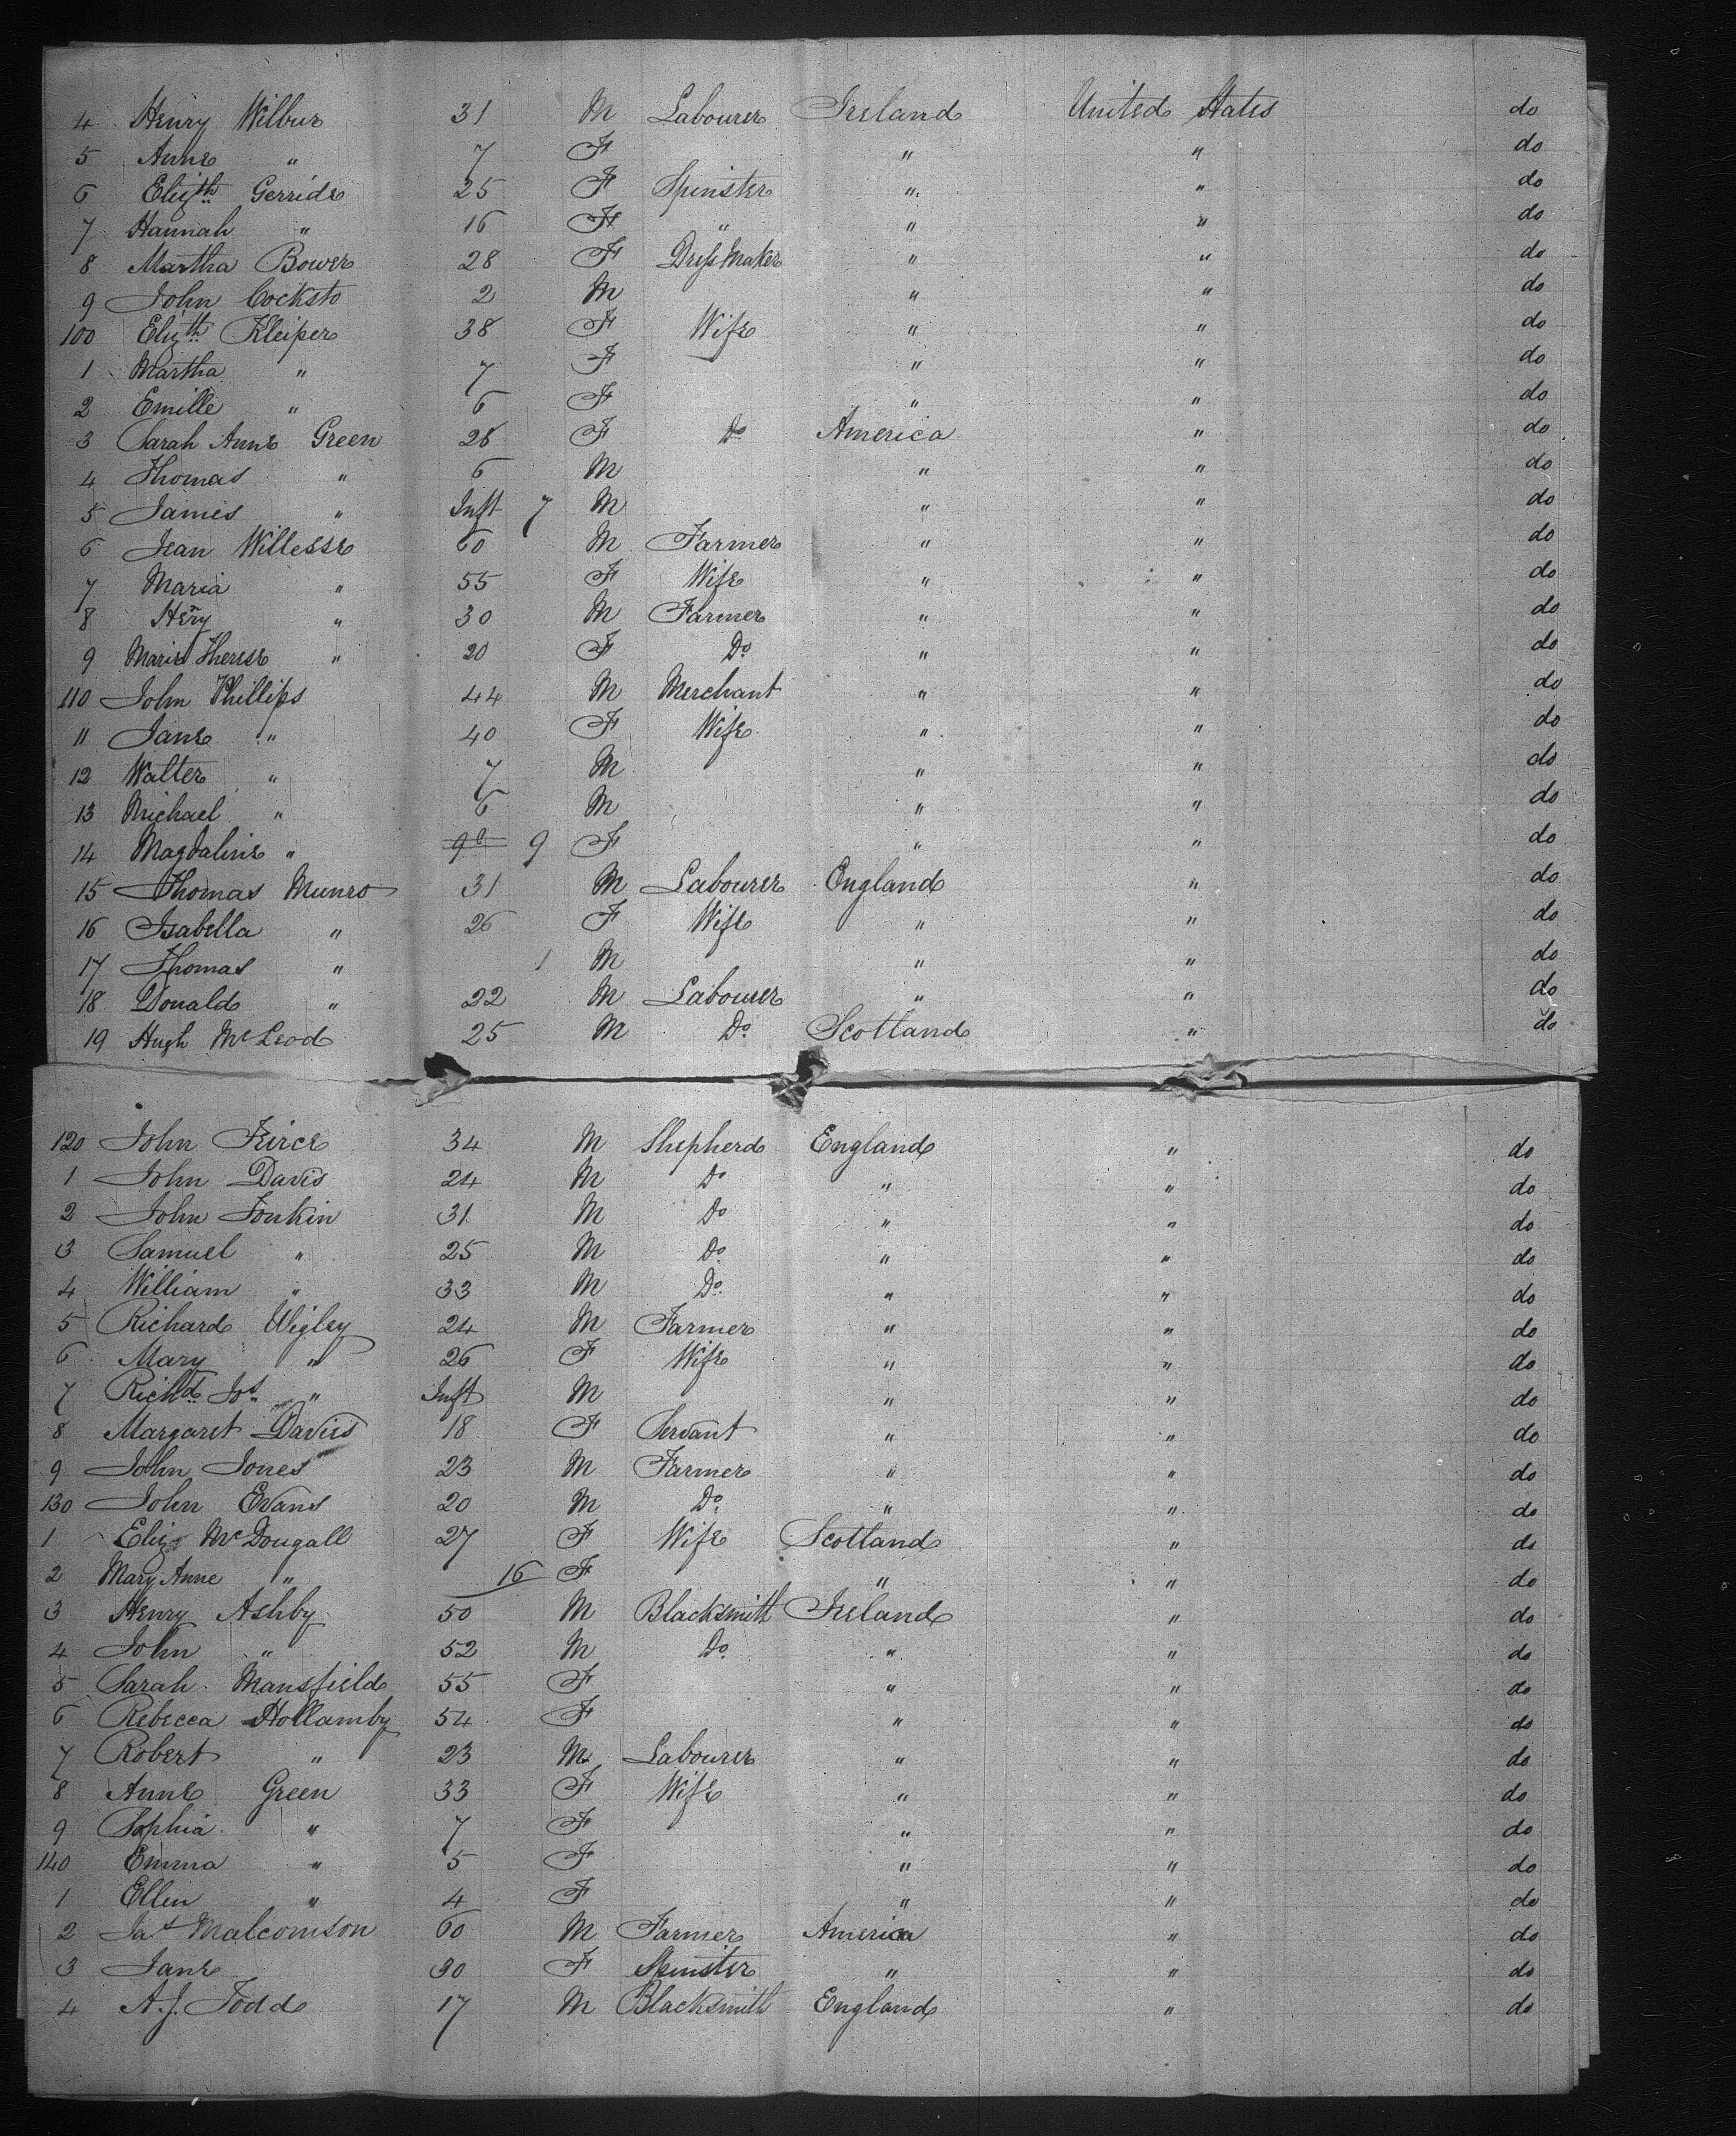 4 Henry Wilbur 31 M Labourer Ireland United States do
5 Anne " 7 F " " do
6 Elizth Gerride 25 F Spinster " " do
7 Hannah " 16 F " " " do
8 Martha Bower 28 F Dress Maker " " do
9 John Cocksto 2 M " " do
100 Elizth Kleiper 38 F Wife " " do
1 Martha " 7 F " " do
2 Emille " 6 F " " do
3 Sarah Anne Green 26 F Do America " do
4 Thomas " 6 M " " do
5 James " Inft 7 M " " do
6 Jean Willesse 60 M Farmer " " do
7 Maria " 55 F Wife " " do
8 Hery " 30 M Farmer " " do
9 Marie Therese " 20 F Do " " do
110 John Phillips 44 M Merchant " " do
11 Jane " 40 F Wife " " do
12 Walter " 7 M " " do
13 Michael " 6 M " " do
14 Magdaline " 9 F " " do
15 Thomas Munro 31 M Labourer England " do
16 Isabella " 26 F Wife " " do
17 Thomas " 1 M " " do
18 Donald " 22 M Labourer " " do
19 Hugh McLeod 25 M Do Scotland " do
120 John Peirce 34 M Shepherd England " do
1 John Davis 24 M Do " " do
2 John Jonkin 31 M Do " " do
3 Samuel " 25 M Do " " do
4 William " 33 M Do " " do
5 Richard Wigley 24 M Farmer " " do
6 Mary " 26 F Wife " " do
7 Richd Jos " Inft M " " do
8 Margaret Davies 18 F Servant " " do
9 John Jones 23 M Farmer " " do
130 John Evans 20 M Do " " do
1 Eliz McDougall 27 F Wife Scotland " do
2 Mary Anne " 16 F " " do
3 Henry Ashby 50 M Blacksmith Ireland " do
4 John " 52 M Do " " do
5 Sarah Mansfield 55 F " " do
6 Rebecca Hollamby 54 F " " do
7 Robert " 23 M Labourer " " do
8 Anne Green 33 F Wife " " do
9 Sophia " 7 F " " do
140 Emma " 5 F " " do
1 Ellen " 4 F " " do
2 Jas Malcomson 60 M Farmer America " do
3 Jane 30 F Spinster " " do
4 A. J. Todd 17 M Blacksmith England " do